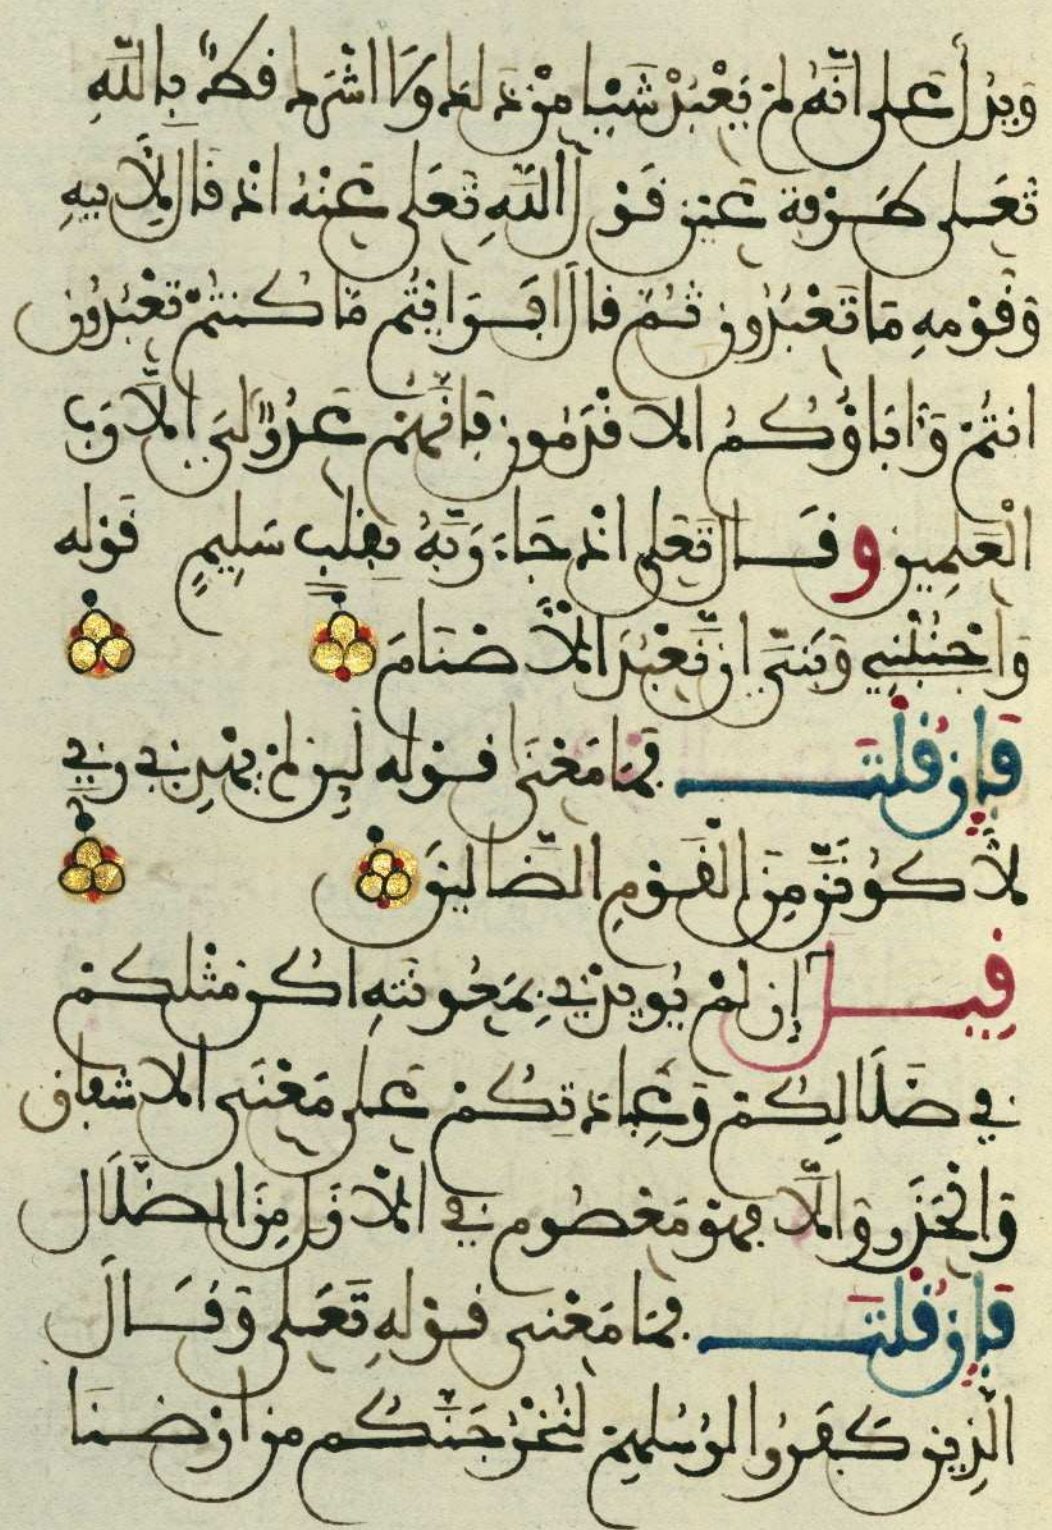 وَيدُلّ عَلى انّهُ لمْ يَعْبُدْ شَيْـا مِنْ ذَلك وَلا اشْرَك فَطّ بِاللّهِ
تَعَلى طَرْفة عَيْن قَوْل اللّهِ تَعَلى عَنْهُ اذ قَال لِأَبيهِ
وَقَوْمهِ مَا تَعْبُدُون ثُمّ قال أَفَرَايْتُم مّا كُنتُمْ تَعْبُدُون
انتُمْ وَءابَاؤُكُمُ الاقْدَمُون فإنّهُمْ عَدُوٌّ لِي إلّا رَبّ
الْعَلمِين وقَال تَعَلى اذ جَاءَ رَبّهُ بِقَلْبٍ سَلِيمٍ قَوْله
وَاجْنُبْنِي وَبَنِيّ ان نّعْبُدَ الأصْنَامَ
فَإن قُلْتَ فمَا مَعْنَى قَوْله لَين لمْ يهْدِنِي رَبِّي
لأكُونَنّ مِنَ الْقَوْمِ الضّالينَ
قِيل إن لمْ يُويدْنِي بمَعُونَتهِ اكُن مثْلكُمْ
في ضَلَالِكُمْ وَعِبَادَتِكُمْ عَلى مَعْنَى الاشْفاق
وَالْحَذَر وَالّا فهْوَ مَعْصُوم في الأزَل مِنَ الضّلَال
فَإن قُلْتَ فمَا مَعْنى قَوْلهِ تَعَلى وَقَالَ
الّذِين كَفَرُوا لِرُسُلهِمْ لنُخْرِجَنّكُم مِن ارْضنَا